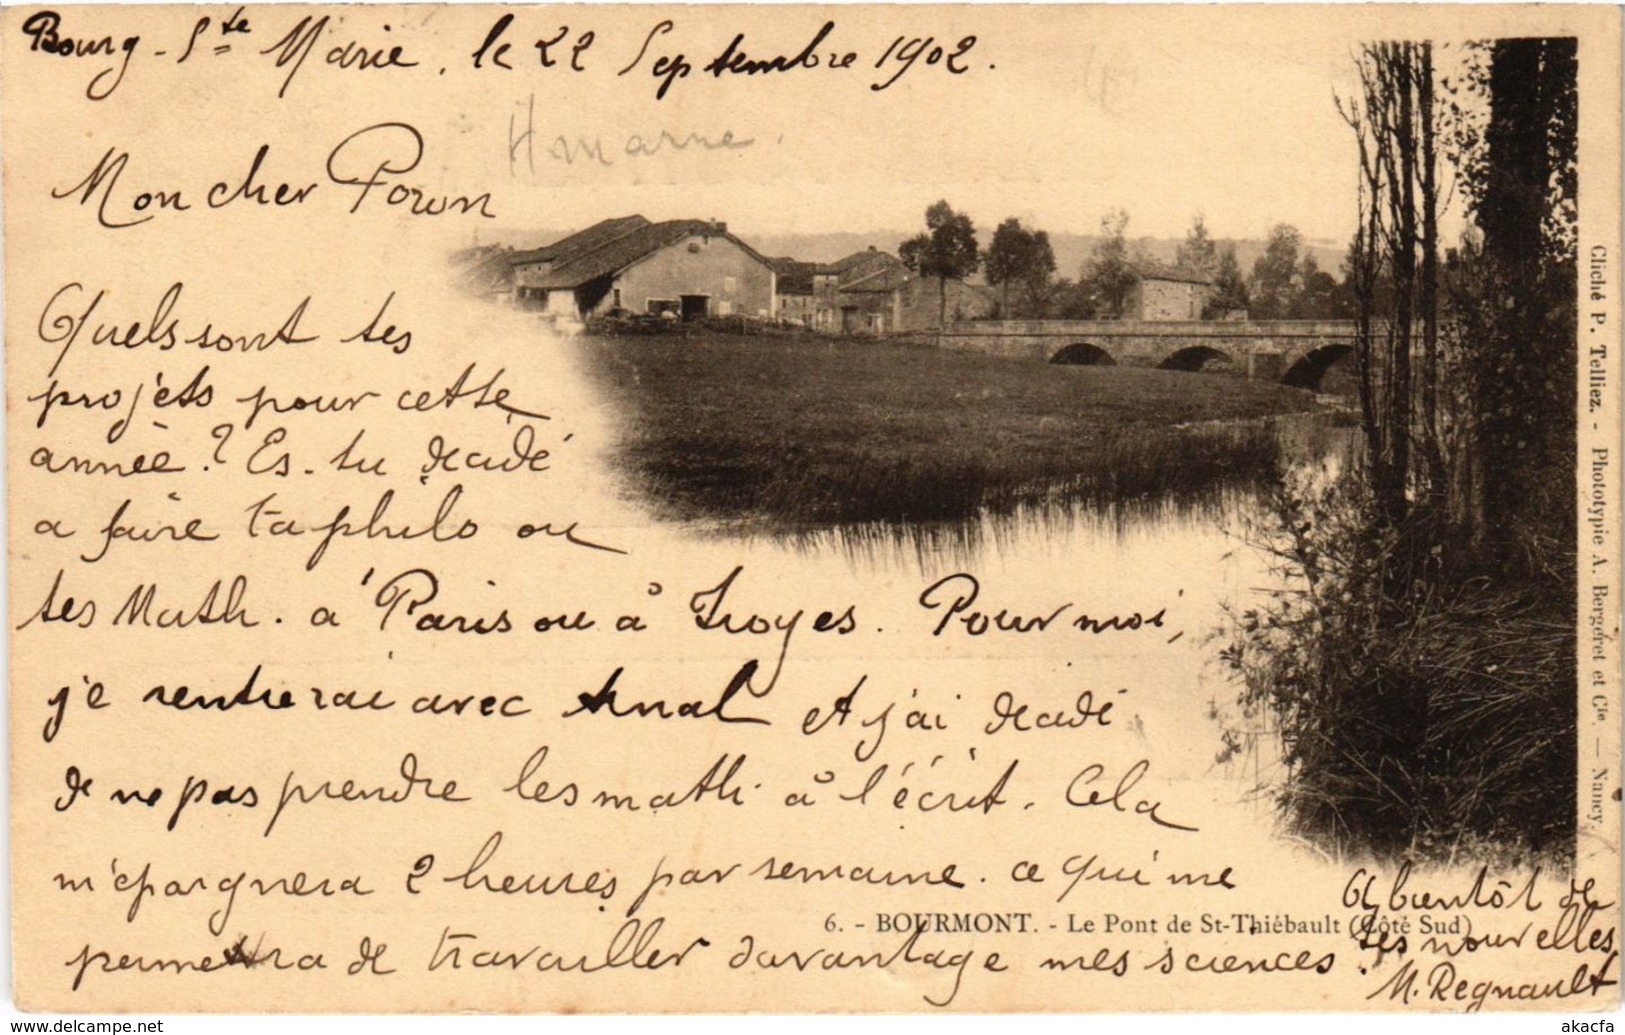 Bourg-Ste Marie, le 22 Septembre 1902.
H marne.
Mon cher Poron
Quels sont tes
projets pour cette
année ? Es-tu décidé
a faire ta philo ou
tes Math. à Paris ou à Troyes. Pour moi,
je rentrerai avec et j'ai décidé
de ne pas prendre les math à l'écrit. Cela
m'épargnera 2 heures par semaine. ce qui me
permettra de travailler davantage mes sciences.
A bientôt de
tes nouvelles
M. Regnault
6. - BOURMONT. - Le Pont de St-Thiébault (Côté Sud)
Cliché P. Telliez. - Phototypie A. Bergeret et Cie. — Nancy.
www.delcampe.net
akacfa